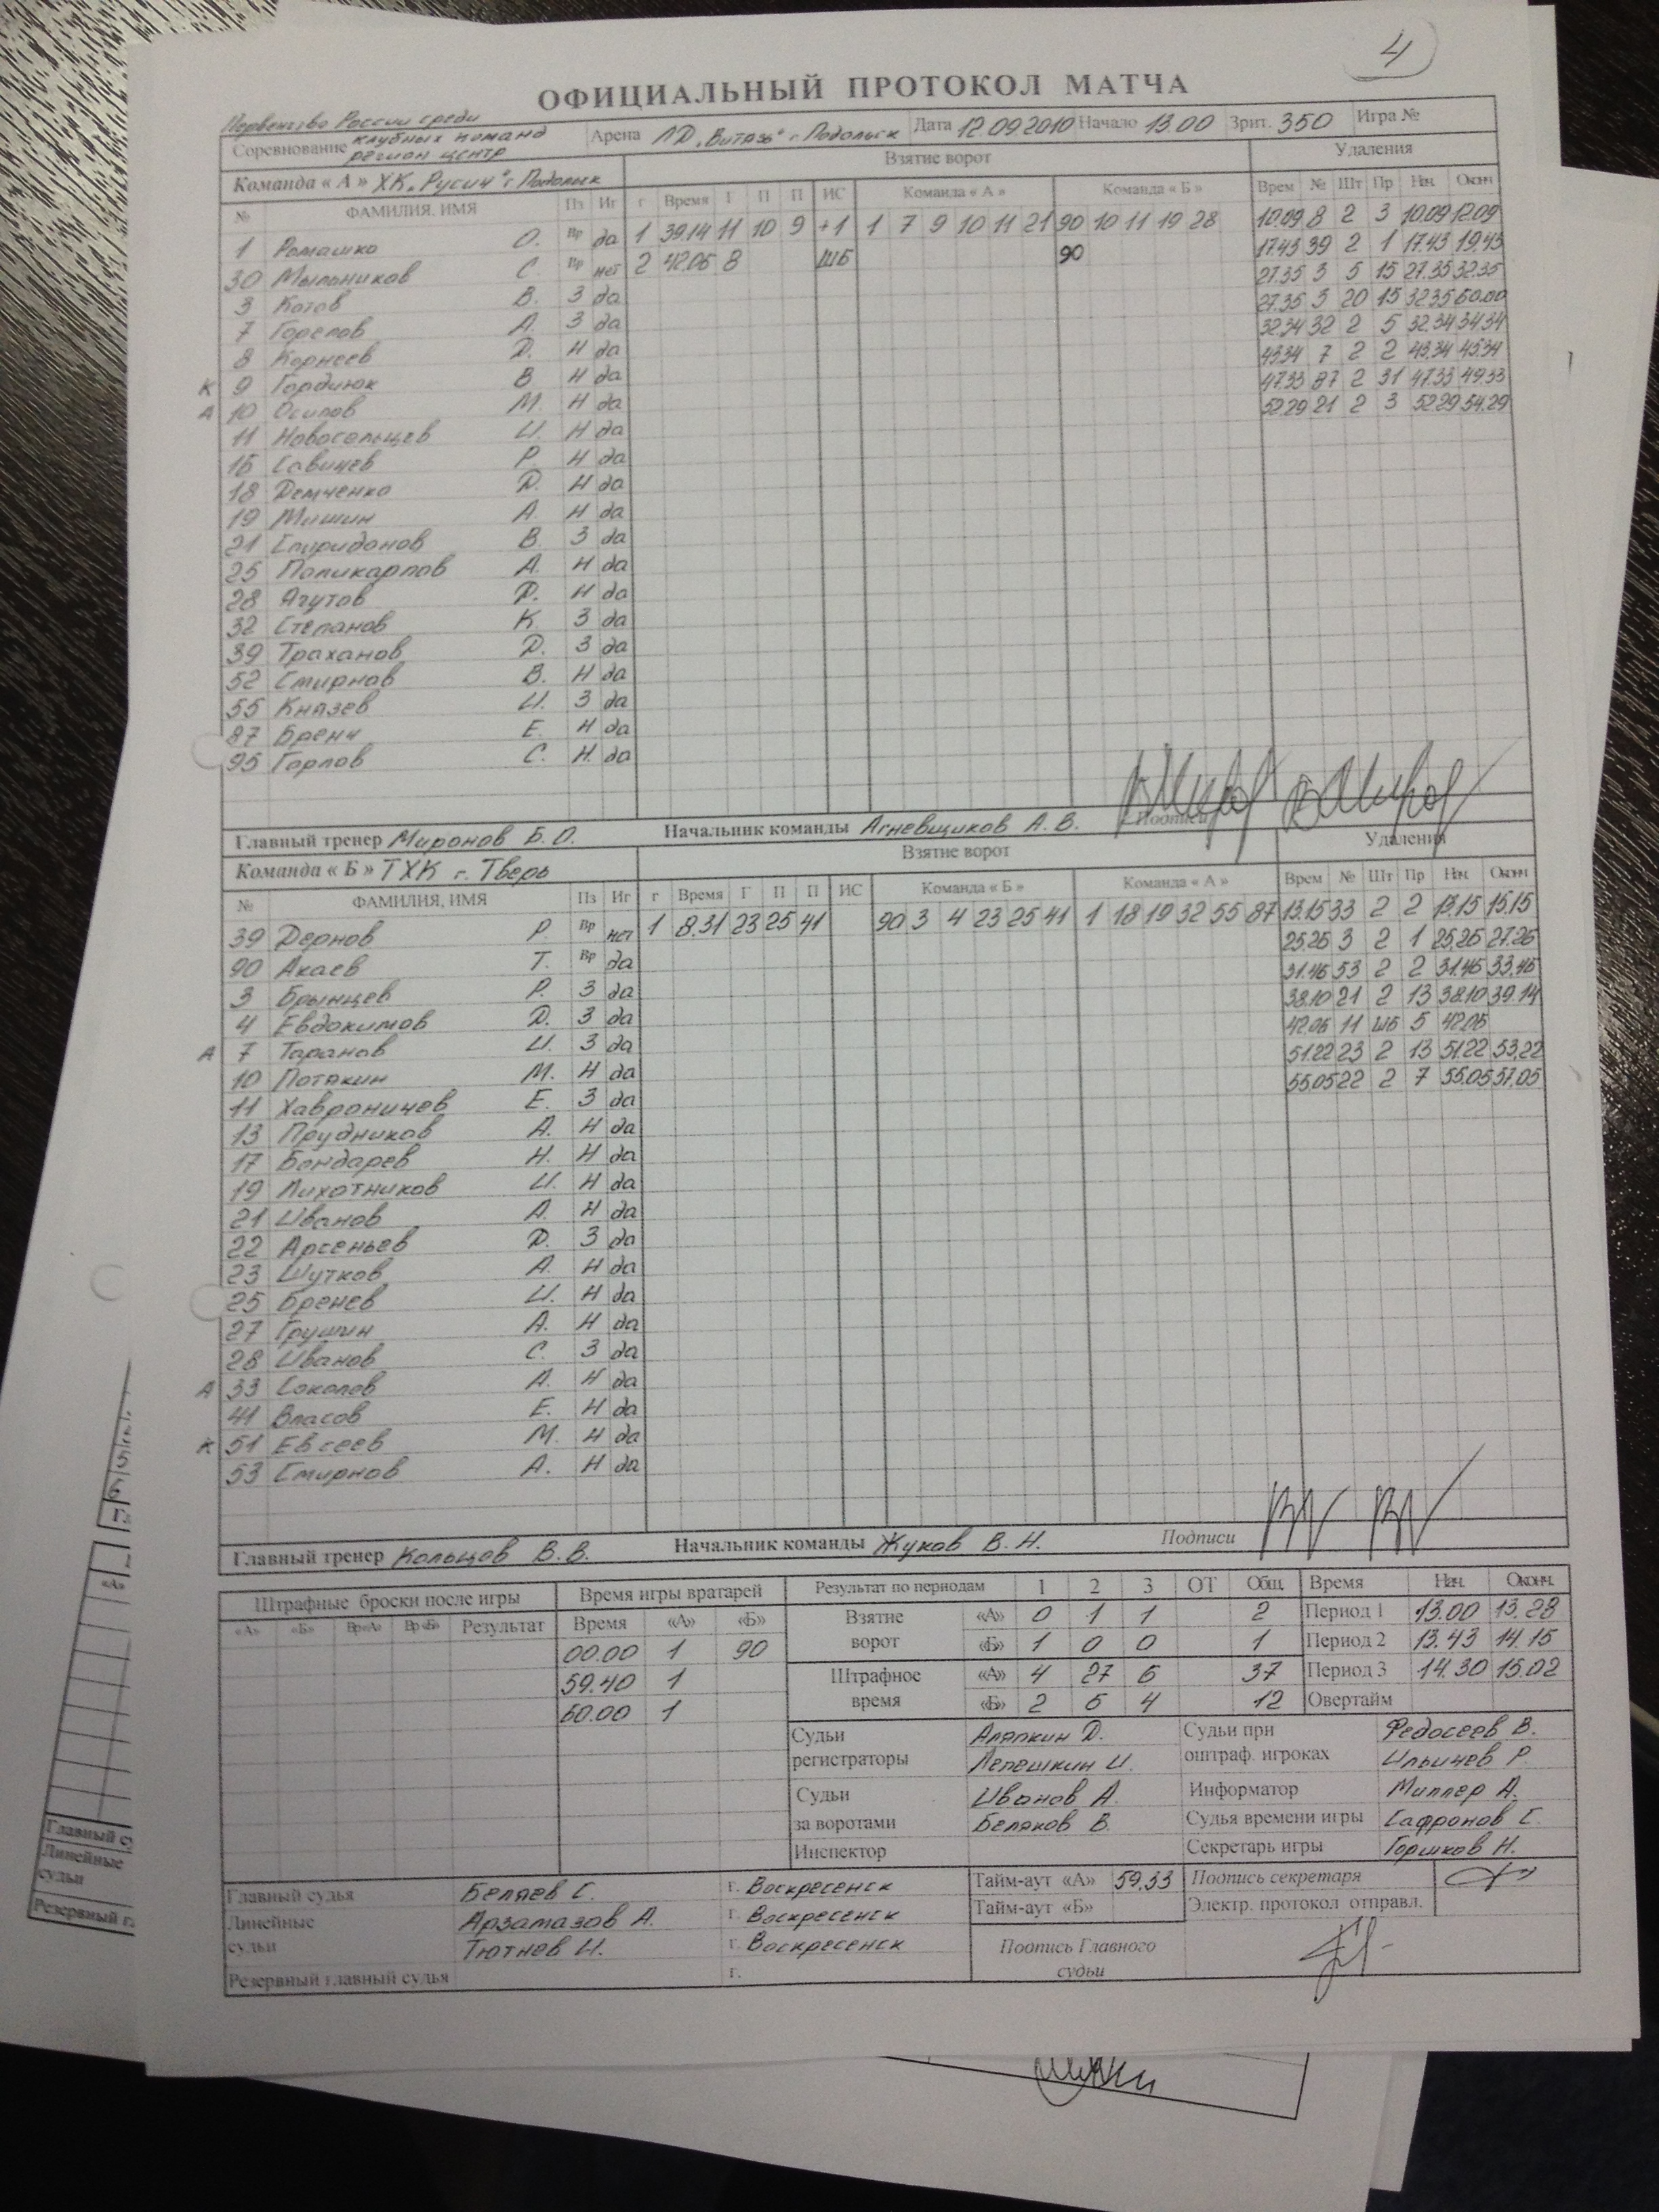 4
ОФИЦИАЛЬНЫЙ ПРОТОКОЛ МАТЧА
Первенство России среди
Соревнование клубных команд Арена ЛД "Витязь" г. Подольск Дата 12.09.2010 Начало 13.00 Зрит. 350 Игра №
регион центр
Команда « А » ХК "Русич" г. Подольск Взятие ворот Удаления
№ ФАМИЛИЯ, ИМЯ Пз Иг г Время Г П П ИС Команда « А » Команда « Б » Врем № Шт Пр Нач. Оконч
1 Ромашко О. Вр да 1 39.14 11 10 9 +1 1 7 9 10 11 21 90 10 11 19 28 10.09 8 2 3 10.09 12.09
30 Мыльников С Вр нет 2 42.05 8 ШБ 90 17.43 39 2 1 17.43 19.43
3 Котов В. З да 27.35 3 5 15 27.35 32.35
7 Горелов А. З да 27.35 3 20 15 32.35 60.00
8 Корнеев Д. Н да 32.34 32 2 5 32.34 34.34
К 9 Гордиюк В Н да 43.34 7 2 2 43.34 45.34
А 10 Осипов М. Н да 47.33 87 2 31 47.33 49.33
11 Новосельцев И. Н да 52.29 21 2 3 52.29 54.29
16 Савичев Р. Н да
18 Демченко Д. Н да
19 Мишин А. Н да
21 Спиридонов В. З да
25 Поликарпов А. Н да
28 Ягутов Р. Н да
32 Степанов К. З да
39 Траханов Д. З да
52 Смирнов В. Н да
55 Князев И. З да
87 Бренч Е. Н да
95 Горлов С. Н. да
Главный тренер Миронов Б.О. Начальник команды Агневщиков А.В. Подписи
Команда « Б » ТХК г. Тверь Взятие ворот Удаления
№ ФАМИЛИЯ, ИМЯ Пз Иг г Время Г П П ИС Команда « Б » Команда « А » Врем № Шт Пр Нач. Оконч
39 Дернов Р Вр нет 1 8.31 23 25 41 90 3 4 23 25 41 1 18 19 32 55 87 13.15 33 2 2 13.15 15.15
90 Акаев Т. Вр да 25.26 3 2 1 25.26 27.26
3 Брынцев Р. З да 31.46 53 2 2 31.46 33.46
4 Евдокимов Д. З да 38.10 21 2 13 38.10 39.14
А 7 Таранов И. З да 42.05 11 ШБ 5 42.05
10 Потякин М. Н да 51.22 23 2 13 51.22 53.22
11 Хавроничев Е. З да 55.05 22 2 7 55.05 57.05
13 Прудников А. Н да
17 Бондарев Н. Н да
19 Лихотников И. Н да
21 Иванов А. Н да
22 Арсеньев Д. З да
23 Шутков А. Н да
25 Бренев И. Н да
27 Грушин А. Н да
28 Иванов С. З да
А 33 Соколов А. Н да
41 Власов Е. Н да
К 51 Евсеев М. Н да
53 Смирнов А. Н да
Главный тренер Кольцов В.В. Начальник команды Жуков В.Н. Подписи
Штрафные броски после игры Время игры вратарей Результат по периодам 1 2 3 ОТ Общ. Время Нач. Оконч.
«А» «Б» Вр«А» Вр«Б» Результат Время «А» «Б» Взятие ворот «А» 0 1 1 2 Период 1 13.00 13.28
00.00 1 90 «Б» 1 0 0 1 Период 2 13.43 14.15
59.40 1 Штрафное время «А» 4 27 6 37 Период 3 14.30 15.02
60.00 1 «Б» 2 6 4 12 Овертайм
Судьи Аляпкин Д. Судьи при Федосеев В.
регистраторы Лепешкин И. оштраф. игроках Ильичев Р.
Судьи Иванов А. Информатор Миллер А.
за воротами Беляков В. Судья времени игры Сафронов С.
Инспектор Секретарь игры Горшков Н.
Главный судья Беляев С. г. Воскресенск Тайм-аут «А» 59.33 Подпись секретаря
Линейные Арзамазов А. г. Воскресенск Тайм-аут «Б» Электр. протокол отправл.
судьи Тютнев И. г. Воскресенск Подпись Главного
Резервный главный судья г. судьи
«А»
Главный су
Линейные
судьи
Резервный гл